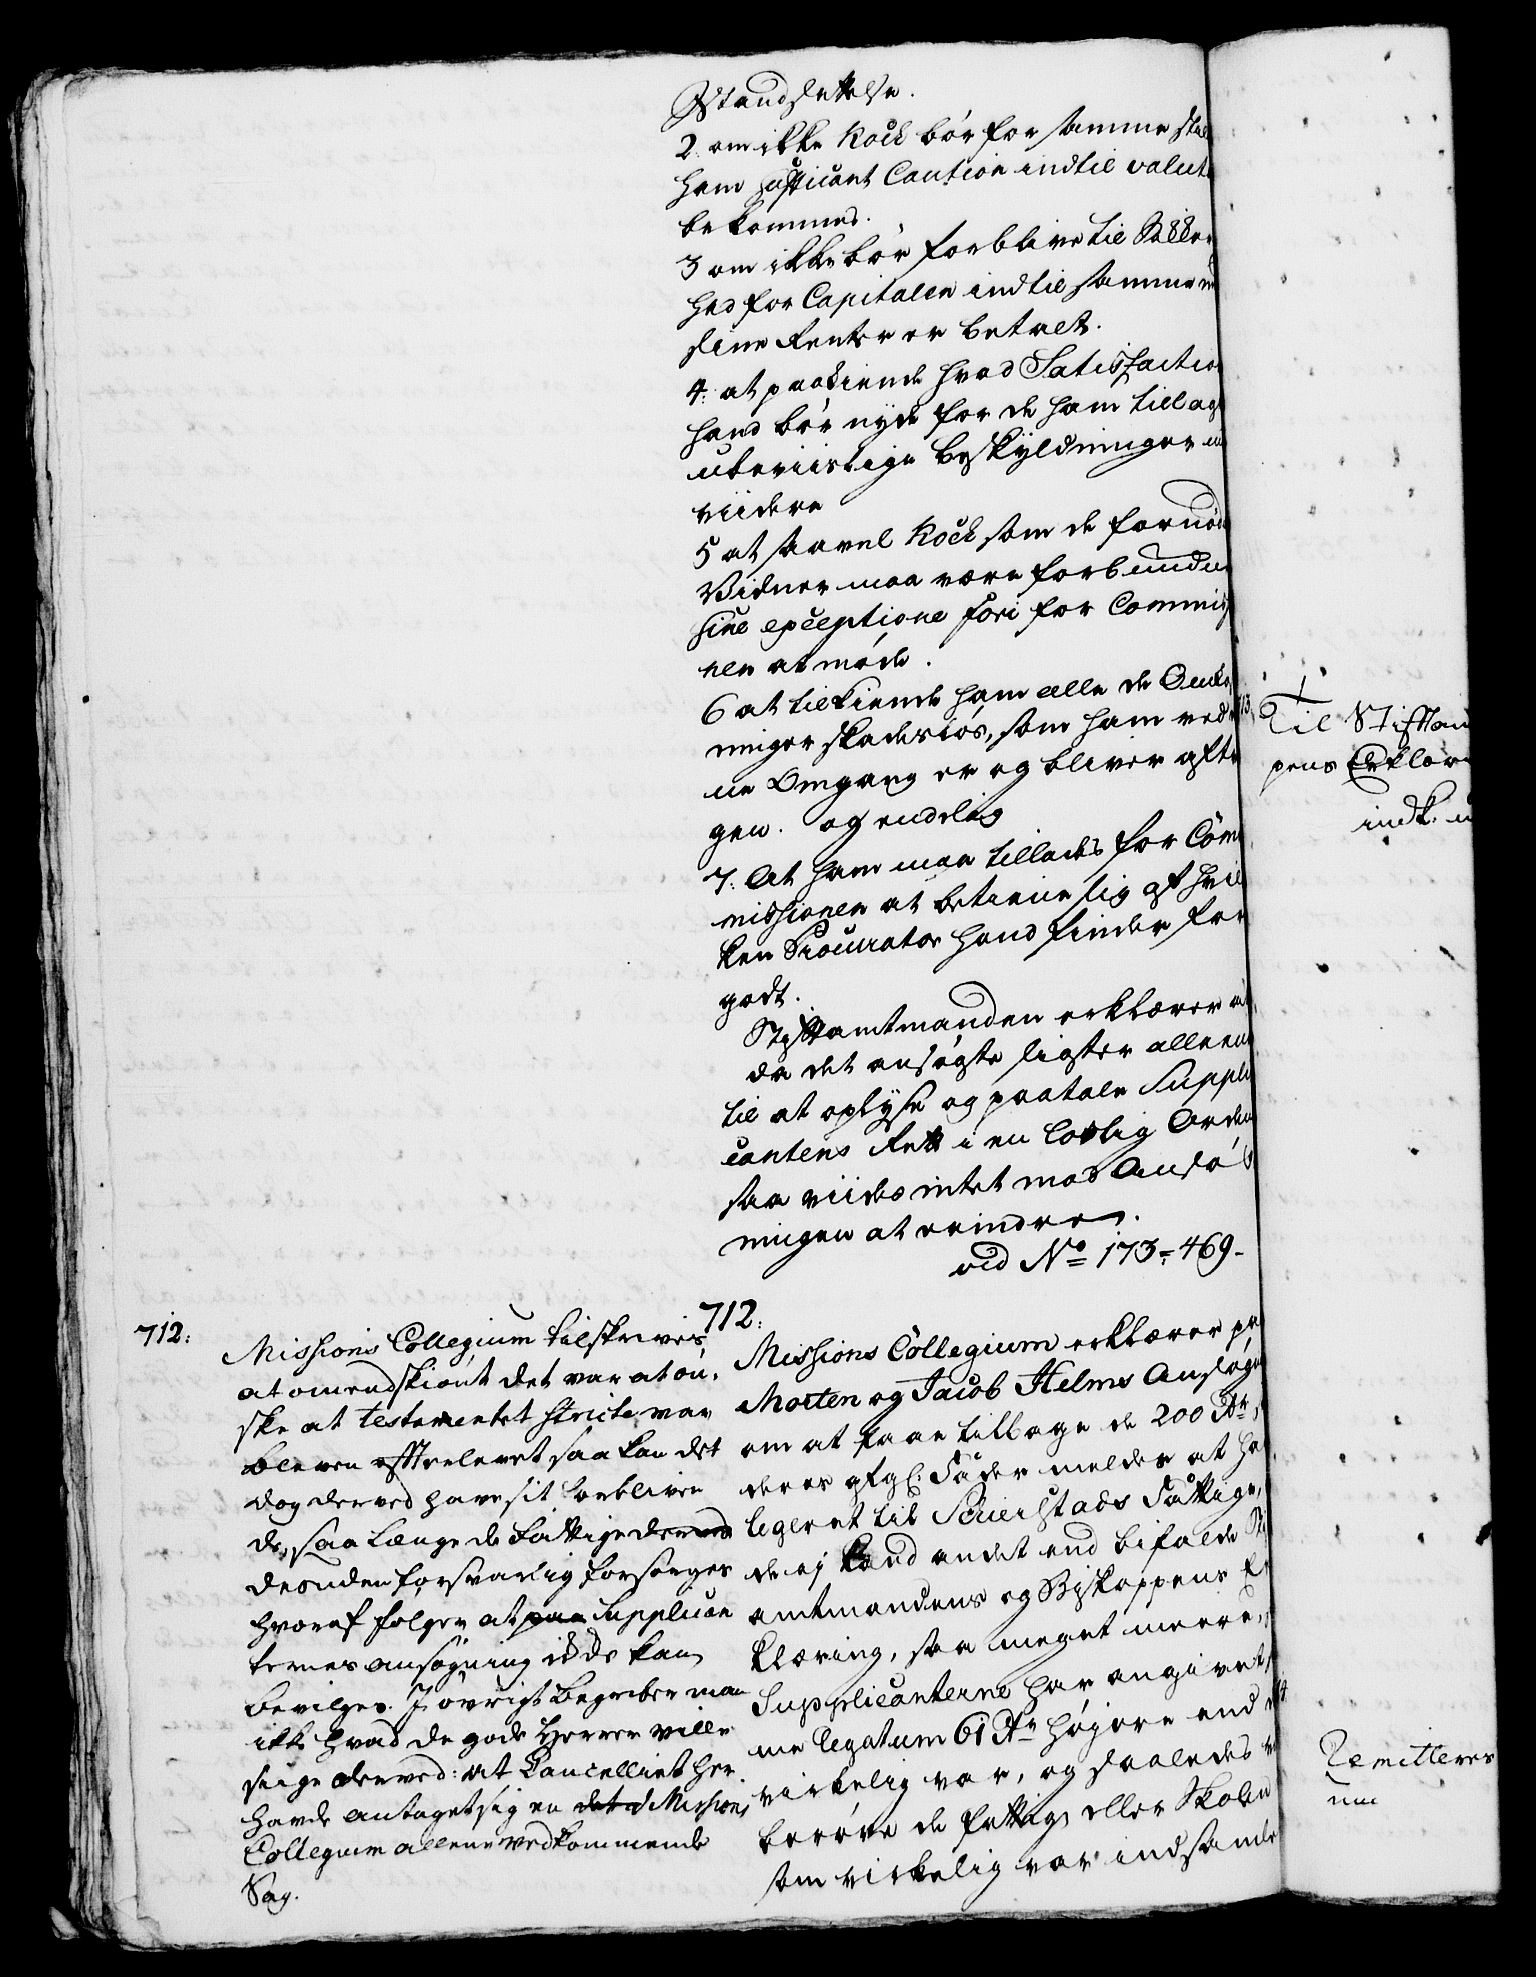 Istandsættelse.
2. om ikke Koch bør for samme stil
ham sufficant Caution indtil valut
bekommes.
3 om ikke bør forblive til Sikker
hed for Capitalen indtil samme m
sine Renter er betalt.
4. at paakiende hvad Satisfactio
hand bør nyde for de ham tillag
ubeviislige Beskyldninger u
viidere
5 at saavel Koch som de fornød
Vidner maa være forbunden
sine exceptione fori for Commis
nen at møde.
6 at tilkiende ham alle de Omko
ninger skadesløs, som ham ved
ne Omgang er og bliver afto
gen. og endelig
7. At ham maa tillades for Com
missionen at betiene sig af hvil
ken Procurator hand finder for
godt.
Stiftamtmanden erklærer at
da det ansøgte sigter alleene
til at oplyse og paatale Suppli
cantens Rett i en lovlig Orden
saa viides intet mod Ansøg
ningen at erindre.
vid No 173 = 469 -
712:
Missions Collegium tilskrives
at omendskiønt det var at øn,
ske at testamentet stricte var
bleven efterlevet saa kan det
dog derved have sit forbliven
de, saa længe de Fattige derved
desuden forsvarlig forsørges
hvoraf følger at paa Supplican
ternes ansøgning ikke kan
bevilges. I øvrigt begriber man
ikke hvad de gode Herrer ville
seige derved: at Cancelliet her
havde antaget sig en det d Missions
Collegium allene vedkommende
Sag.
712.
Missions Collegium erklærer pa
Morten og Jacob Helms Ansøgn
om at faae tilbage de 200 Rdr,
deres afgl. Fader melder at ha
legeret til Scheelstads Fattige,
de ej kand andet end bifalde St
amtmandens og Biskoppens Er
klæring, saa meget meere,
Supplicanterne har angivet
me legatum 61 Rdr høyere end d
virkelig var, og saaledes v
berøve de fattige eller Skolen
som virkelig var indsamle
713.
Til Stiftam
pens Erklær
indk. u
Remitteres